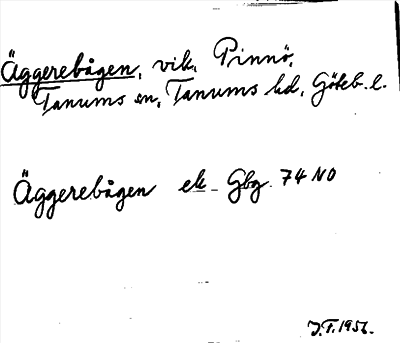 Äggerebågen, vik, Pinnö,
Tanums sn, Tanums hd, Göteb. l.
Äggerebågen ek. Gbg. 74 NO
J.F. 1956.